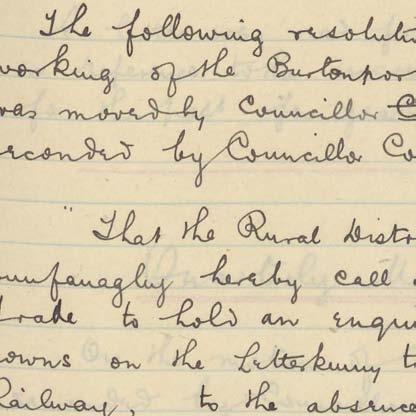 The following resoluti
working of the Burtonpor
was moved by Councillor C
seconded by Councillor Co
"That the Rural Distr
unfanaghy hereby call
Trade to hold an enqui
towns on the Letterkenny t
Railway, to the absence